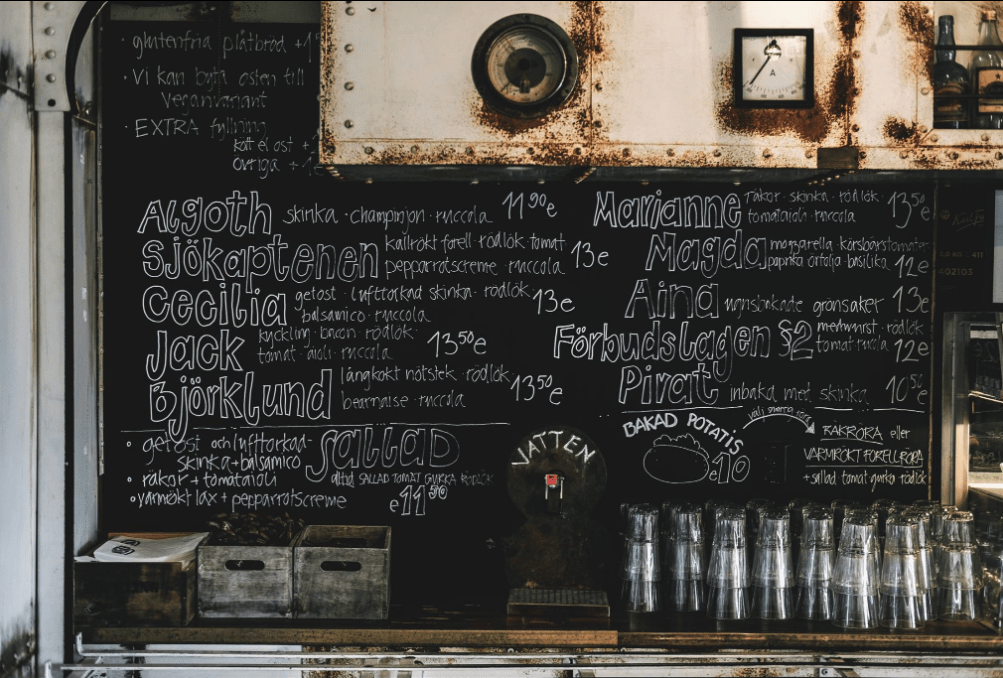 · glutenfria plåtbröd +1
· Vi kan byta osten till
veganvariant
· EXTRA fyllning
kött el ost +
övriga +
Algoth skinka · champinjon · ruccola 11⁹⁰e
Sjökaptenen kallrökt forell · rödlök · tomat
pepparrotscreme · ruccola 13e
Cecilia getost · lufttorkad skinka · rödlök ·
balsamico · ruccola 13e
Jack kyckling · bacon · rödlök ·
tomat · aioli · ruccola 13⁵⁰e
Björklund långkokt nötstek · rödlök ·
bearnaise · ruccola 13⁵⁰e
· getost och lufttorkad-
skinka + balsamico
· räkor + tomataioli
· varmrökt lax + pepparrotscreme
SALLAD
alltid SALLAD TOMAT GURKA RÖDLÖK
e11⁵⁰
VATTEN
Marianne räkor · skinka · rödlök ·
tomataioli · ruccola 13⁵⁰e
Magda mozzarella · körsbärstomater
paprika · basilika 12e
Aina ugnsbakade grönsaker 13e
Förbudslagen §2 medwurst · rödlök
tomat · ruccola 12e
Pirat inbakad met skinka 10⁵⁰e
BAKAD POTATIS
e10
välj
RÄKRÖRA eller
VARMRÖKT FORELLRÖRA
+ sallad tomat gurka rödlök
A